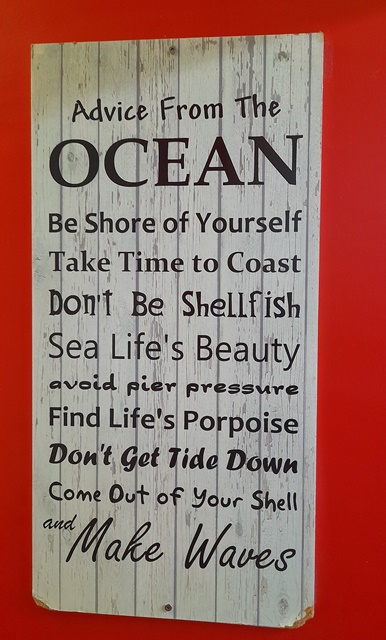 Advice From The
OCEAN
Be Shore of Yourself
Take Time to Coast
Don't Be Shellfish
Sea Life's Beauty
avoid pier pressure
Find Life's Porpoise
Don't Get Tide Down
Come Out of Your Shell
and
Make Waves